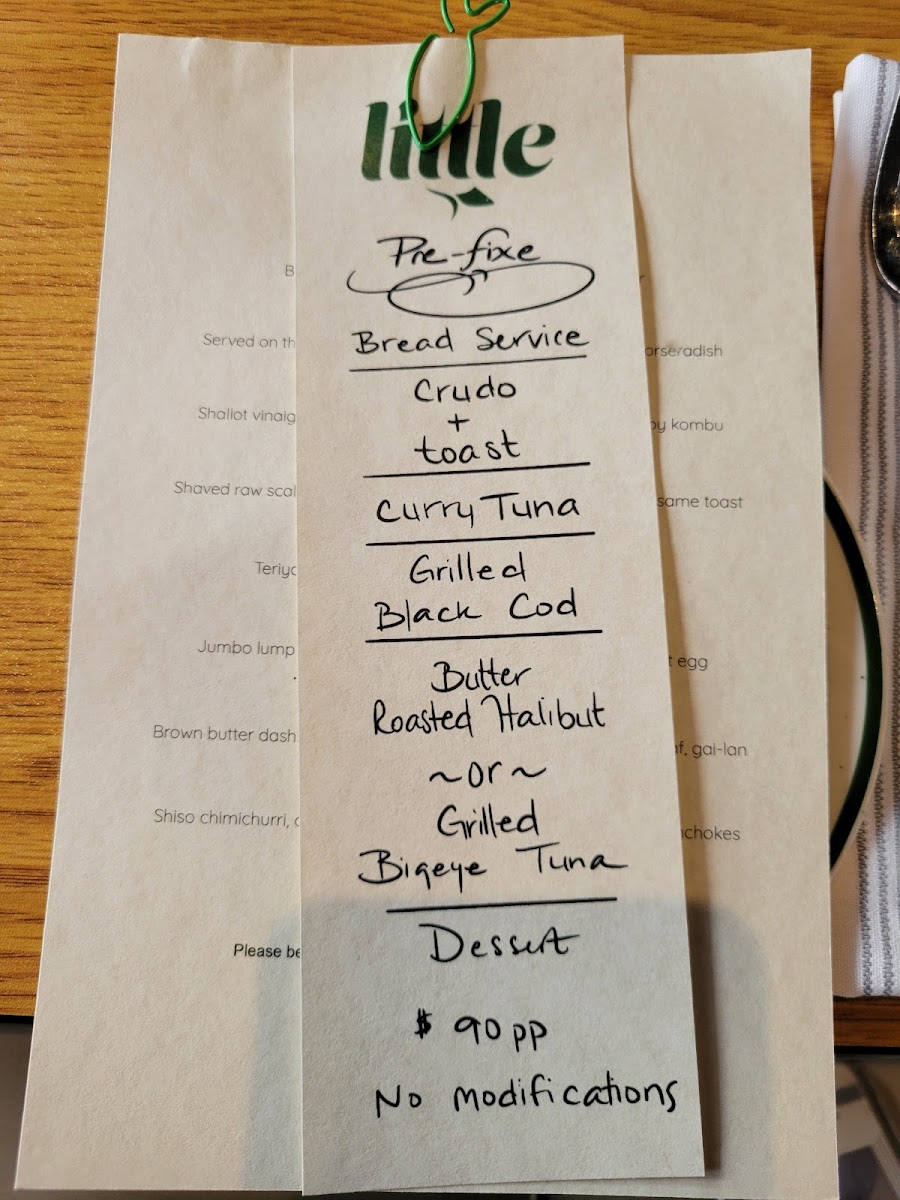 little
Pre-fixe
Bread Service
Crudo
+
toast
Curry Tuna
Grilled
Black Cod
Butter
Roasted Halibut
~or~
Grilled
Bigeye Tuna
Dessert
$ 90 pp
No modifications
B
Served on th
orseradish
Shallot vinaig
by kombu
Shaved raw scal
same toast
Teriya
Jumbo lump
t egg
Brown butter dash
af, gai-lan
Shiso chimichurri,
chokes
Please be